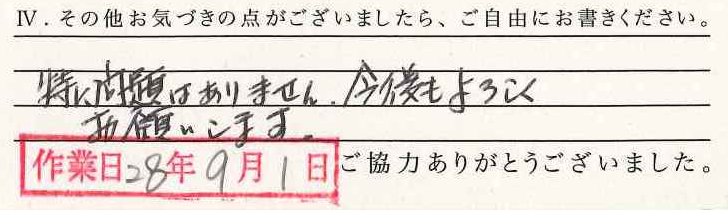 Ⅳ．その他お気づきの点がございましたら、ご自由にお書きください。
特に問題はありません。今後もよろしく
お願いします。
作業日28年9月1日 ご協力ありがとうございました。